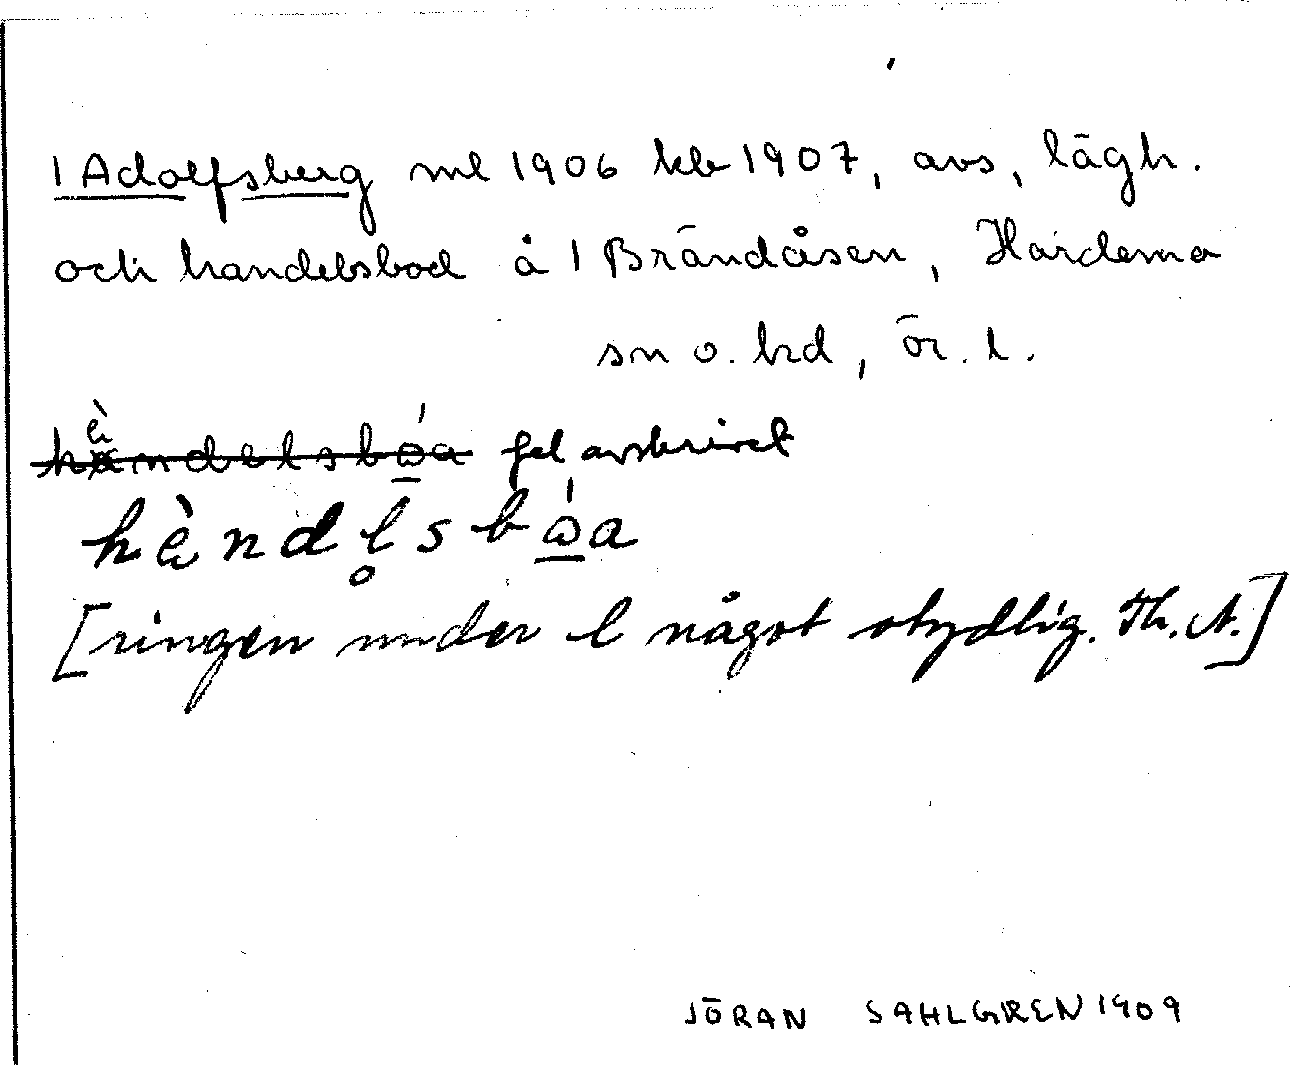 1 Adolfsberg ml 1906 kb 1907, avs, lägh.
och handelsbod å 1 Brändåsen, Hardemo
sn o. hd, ör. l.
handelsboa fel avskrivet
hàndl̥sbo̲a
[ringen under l något otydlig. Th. A.]
JÖRAN SAHLGREN 1909